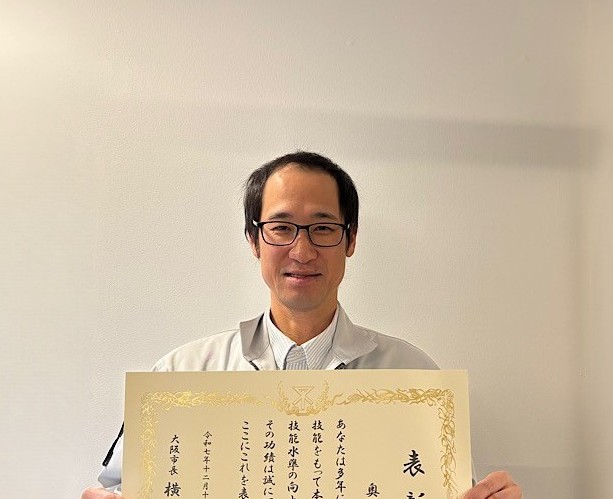 表彰
奥
あなたは多年に
技能をもって本
技能水準の向上
その功績は誠に
ここにこれを表
令和七年十二月十
大阪市長 横